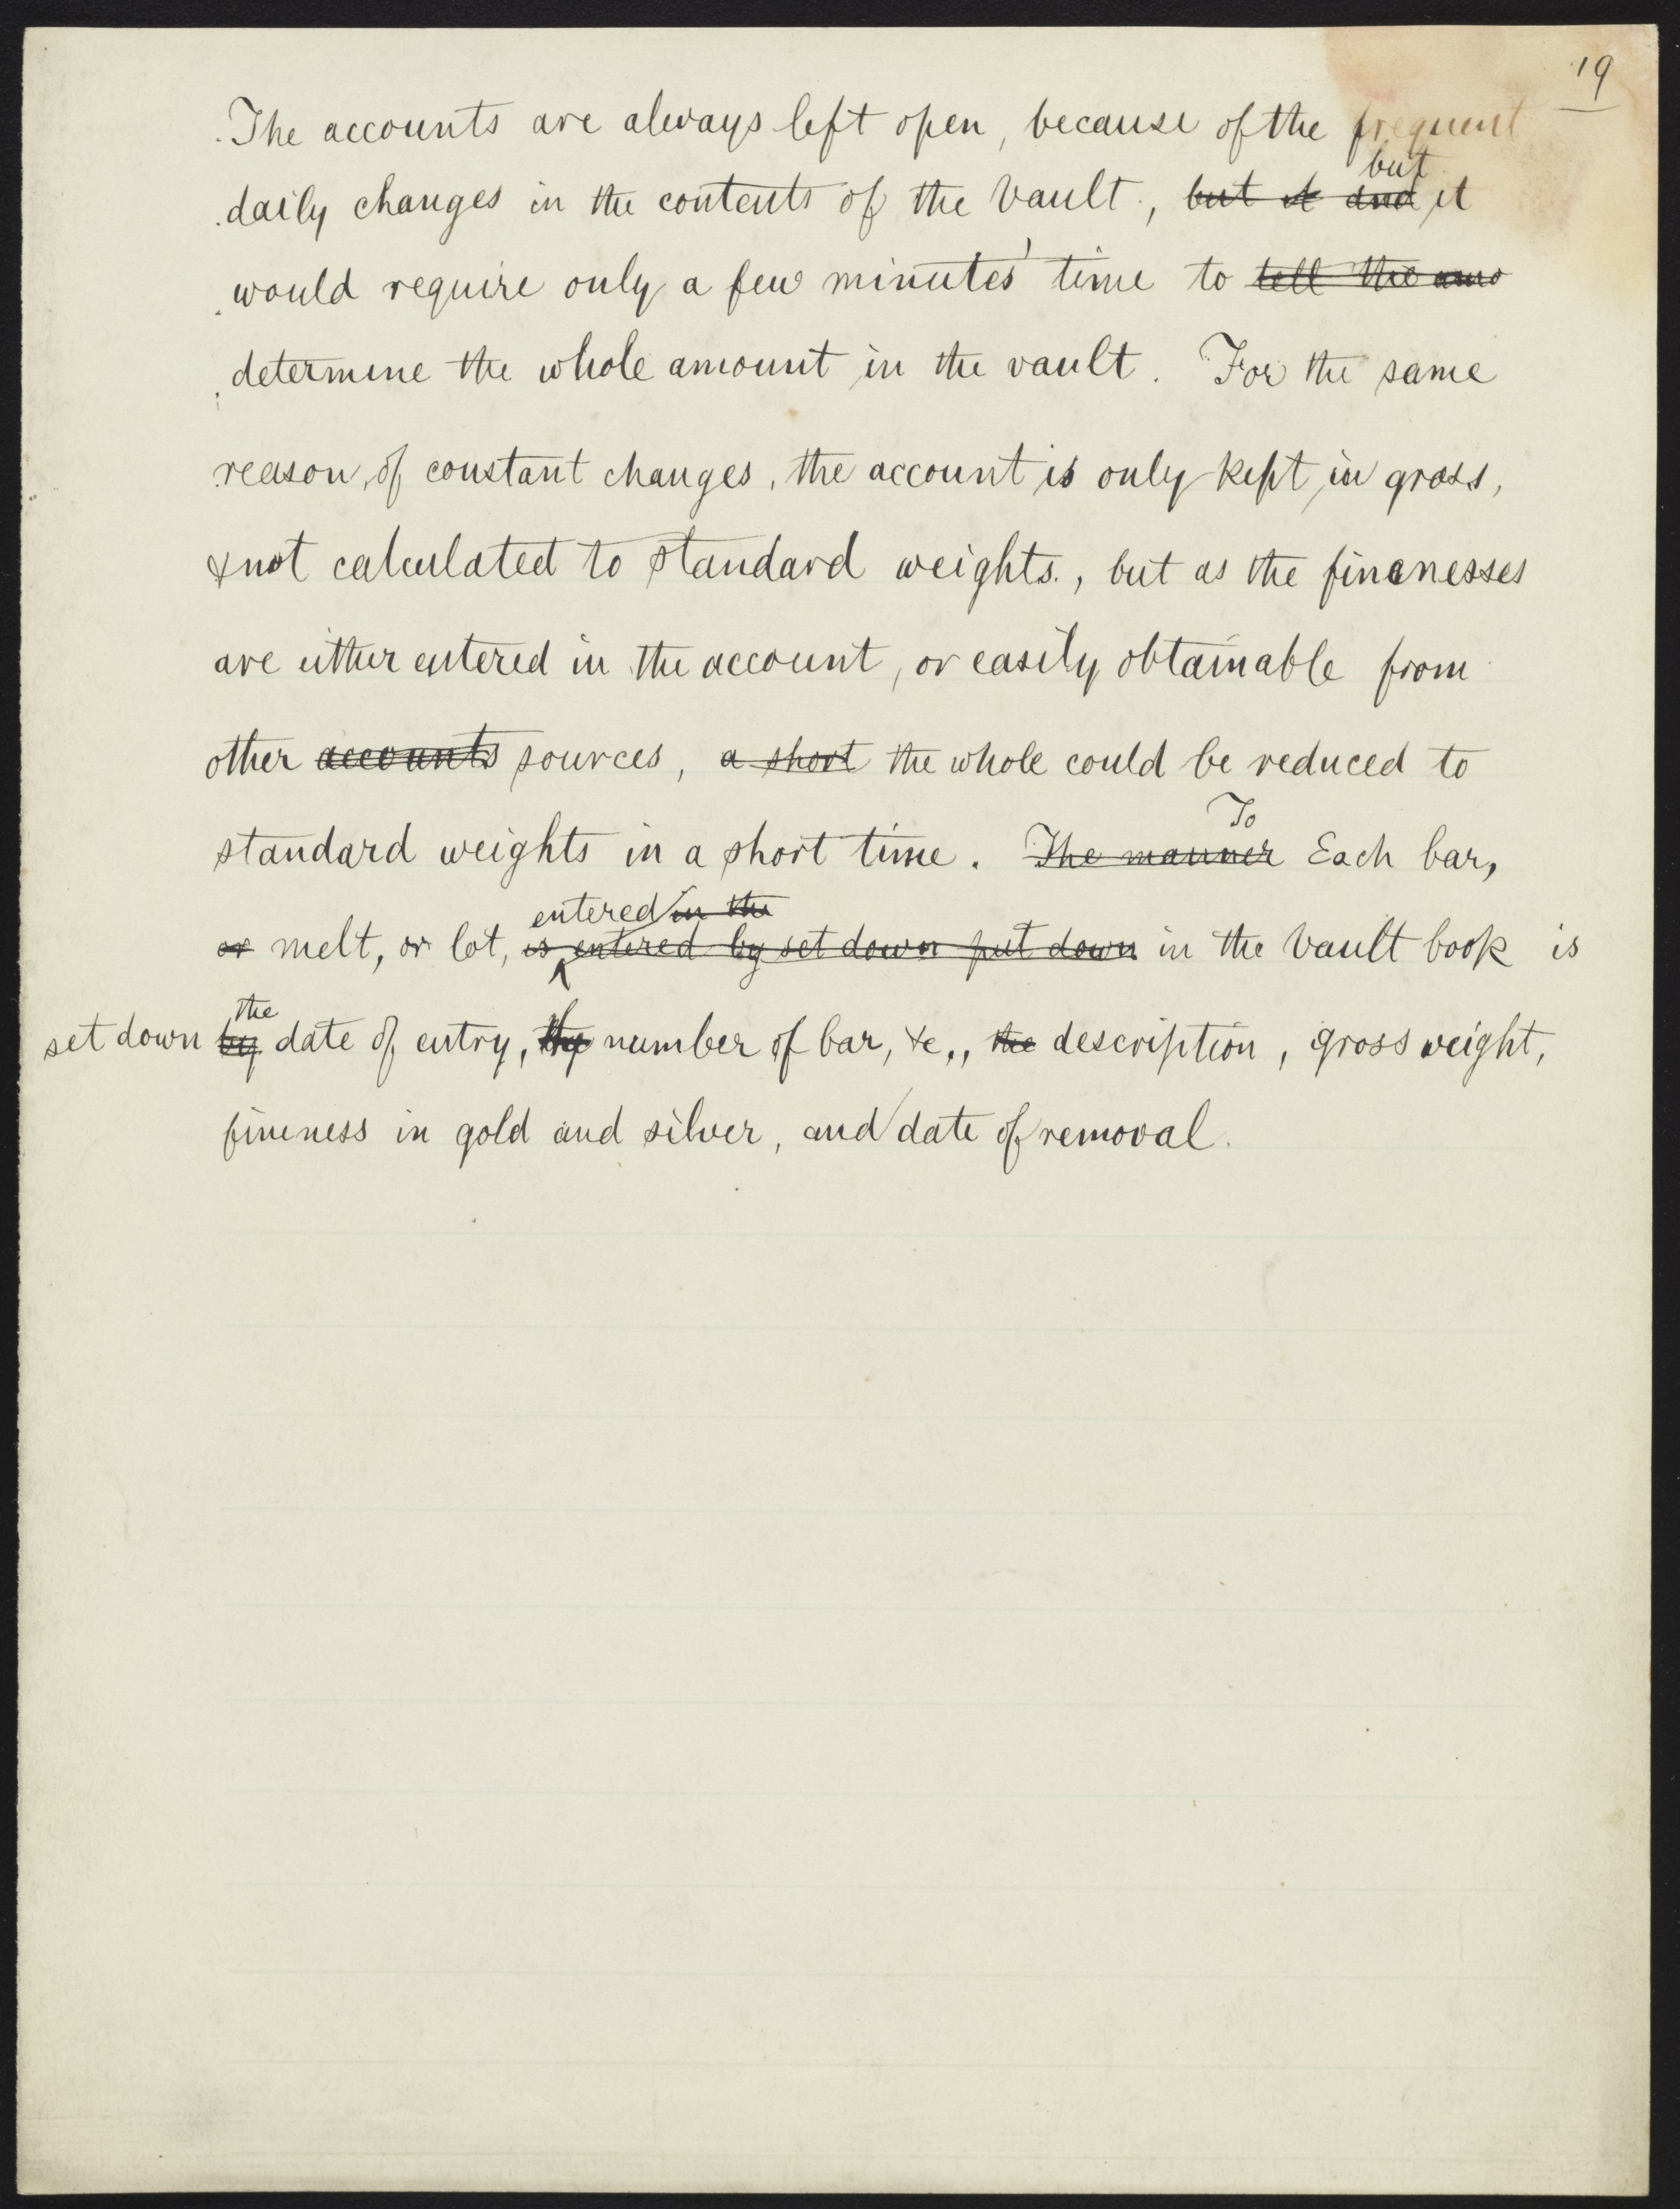 19
The accounts are always left open, because of the frequent
but
daily changes in the contents of the Vault, but it and it
would require only a few minutes' time to tell the amo
determine the whole amount in the vault. For the same
reason, of constant changes, the account is only kept in gross,
& not calculated to standard weights., but as the finenesses
are either entered in the account, or easily obtainable from
other accounts sources, a short the whole could be reduced to
To
standard weights in a short time. The manner Each bar,
entered in the
or melt, or lot, is entered by set down put down in the Vault book is
the
set down by date of entry, the number of bar, &c., the description, gross weight,
fineness in gold and silver, and date of removal.